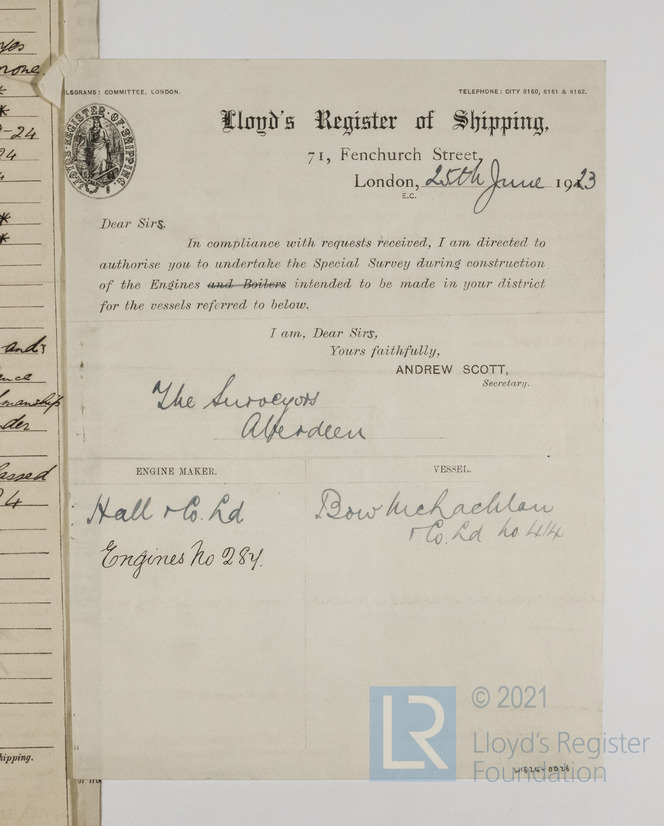 yes
none
*
*
-24
94
*
*
and
ence
manship
der
assed
4
hipping.
LEGRAMS: COMMITTEE, LONDON.
TELEPHONE: CITY 8160, 8161 & 8162.
LLOYD'S REGISTER OF SHIPPING.
Lloyd's Register of Shipping,
71, Fenchurch Street,
London, 25th June 1923
E.C.
Dear Sirs,
In compliance with requests received, I am directed to
authorise you to undertake the Special Survey during construction
of the Engines and Boilers intended to be made in your district
for the vessels referred to below.
I am, Dear Sirs,
Yours faithfully,
ANDREW SCOTT,
Secretary.
The Surveyors
Aberdeen
ENGINE MAKER.
VESSEL.
Hall & Co. Ld
Bow McLachlan
& Co. Ld no 414
Engines No 284.
LR
© 2021
Lloyd's Register
Foundation